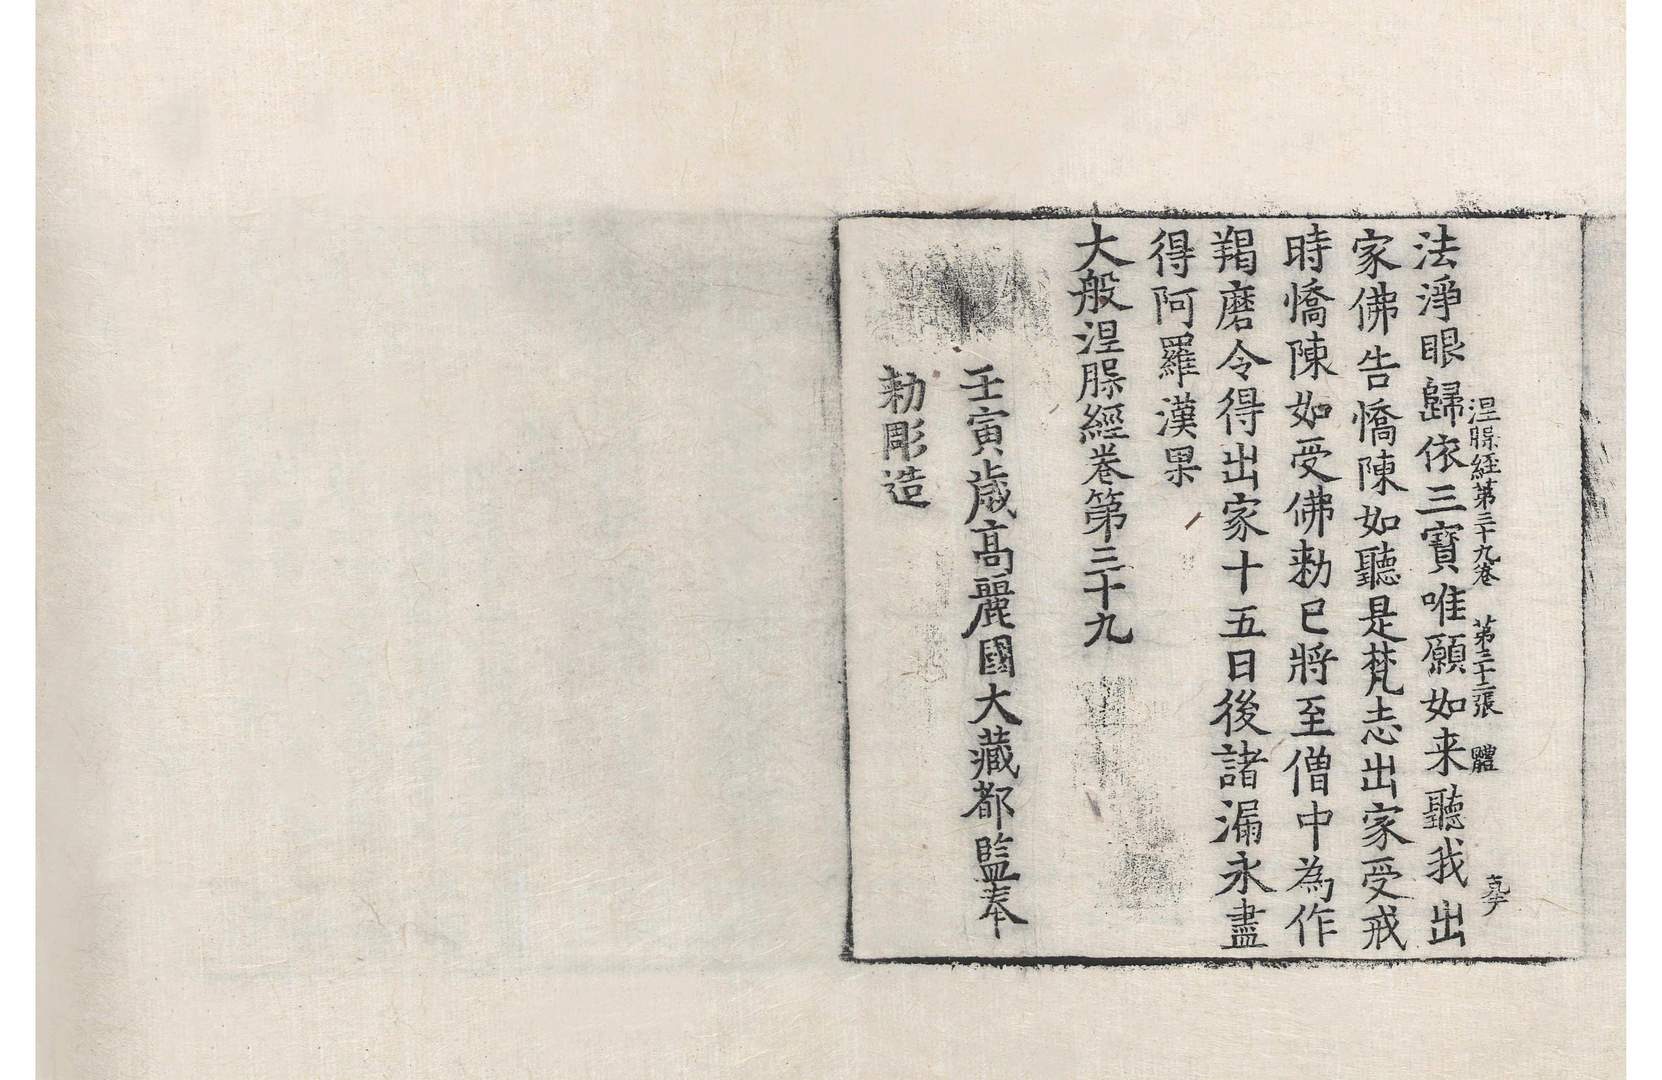 涅槃經第三十九卷 第三十二張 體
法淨眼歸依三寶唯願如来聽我出
家佛告憍陳如聽是梵志出家受戒
時憍陳如受佛勑已將至僧中為作
羯磨令得出家十五日後諸漏永盡
得阿羅漢果
大般涅槃經卷第三十九
壬寅歲高麗國大藏都監奉
勑彫造